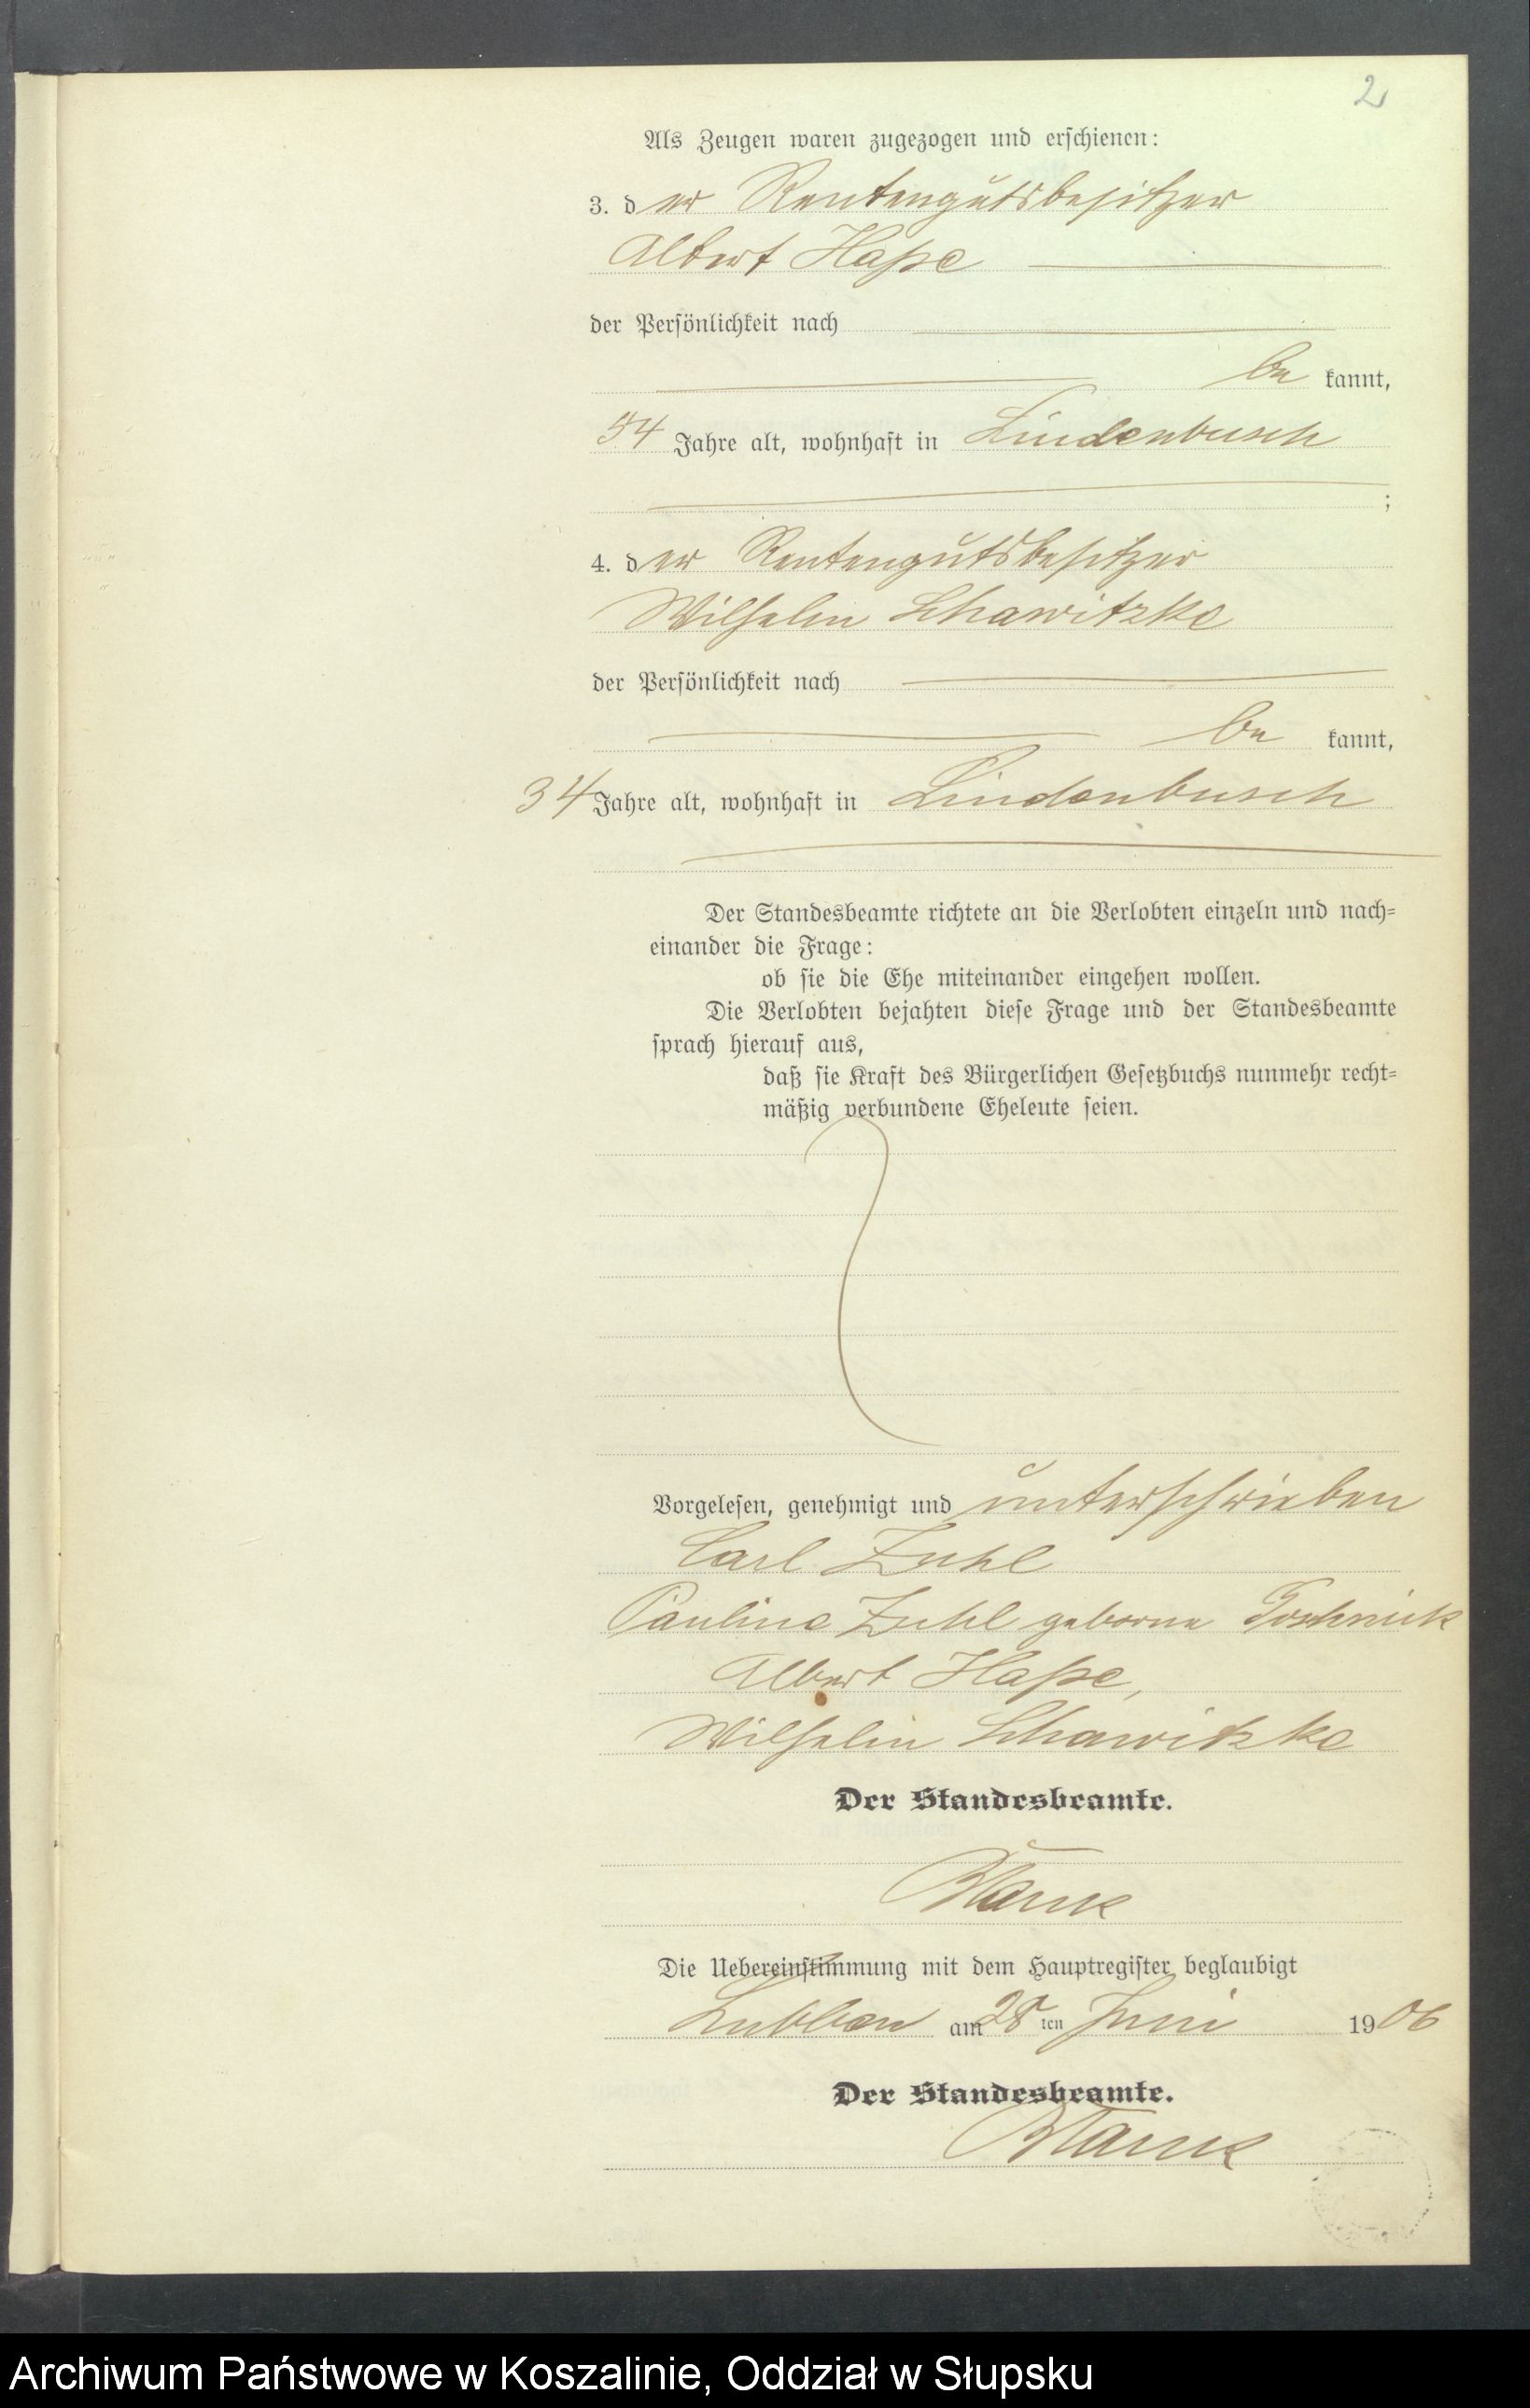 2
Als Zeugen waren zugezogen und erschienen:
3. der Rentengutsbesitzer
Albert Haße
der Persönlichkeit nach
be kannt,
54 Jahre alt, wohnhaft in Lindenbusch
;
4. der Rentengutsbesitzer
Wilhelm Schawitzke
der Persönlichkeit nach
be kannt,
34 Jahre alt, wohnhaft in Lindenbusch
Der Standesbeamte richtete an die Verlobten einzeln und nach=
einander die Frage:
ob sie die Ehe miteinander eingehen wollen.
Die Verlobten bejahten diese Frage und der Standesbeamte
sprach hierauf aus,
daß sie Kraft des Bürgerlichen Gesetzbuchs nunmehr recht=
mäßig verbundene Eheleute seien.
Vorgelesen, genehmigt und unterschrieben
Carl Zuhl
Pauline Zuhl geborne
Albert Haße,
Wilhelm Schawitzke
Der Standesbeamte.
Die Uebereinstimmung mit dem Hauptregister beglaubigt
Lubben am 28 ten Juni 1906
Der Standesbeamte.
Archiwum Państwowe w Koszalinie, Oddział w Słupsku